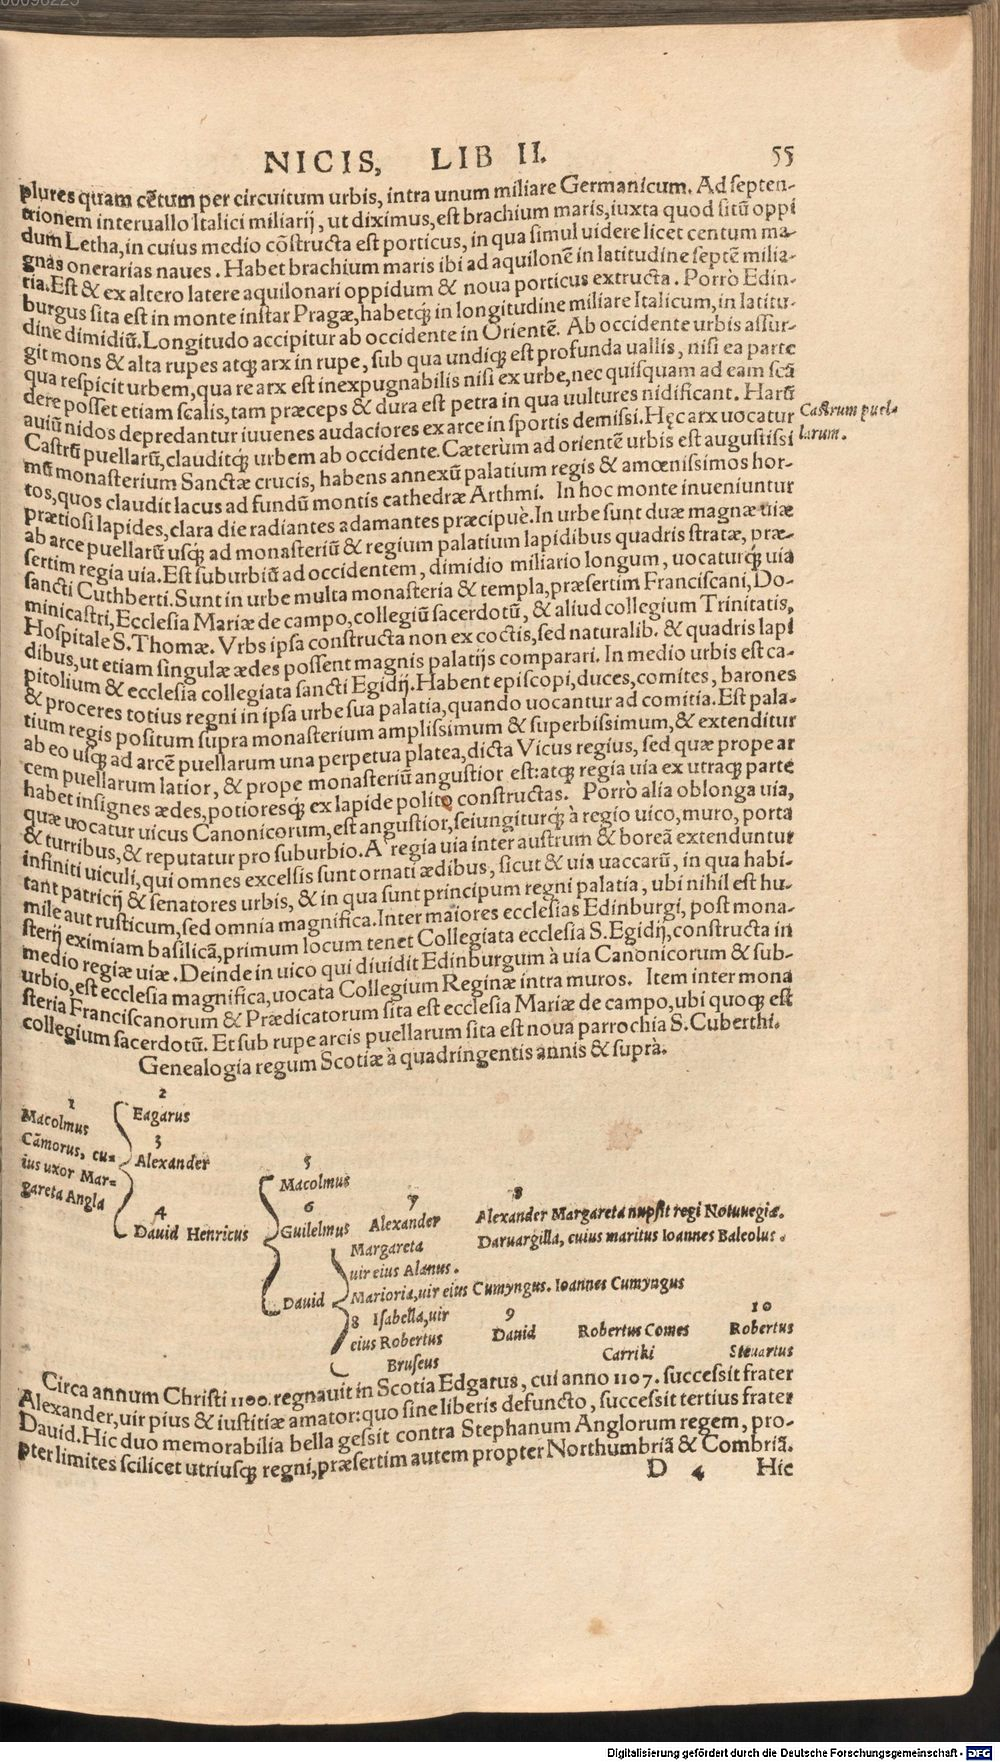 00096225
NICIS, LIB II. 55
plures quam cẽtum per circuitum urbis, intra unum miliare Germanicum. Ad septen-
trionem interuallo Italici miliarij, ut diximus, est brachium maris, iuxta quod sitũ oppi
dum Letha, in cuius medio cõstructa est porticus, in qua simul uidere licet centum ma-
gnas onerarias naues. Habet brachium maris ibi ad aquilonẽ in latitudine septẽ milia-
ria. Est & ex altero latere aquilonari oppidum & noua porticus extructa. Porrò Edin-
burgus sita est in monte instar Pragæ, habetq́ꝫ in longitudine miliare Italicum, in latitu-
dine dimidiũ. Longitudo accipitur ab occidente in Orientẽ. Ab occidente urbis assur-
git mons & alta rupes atqꝫ arx in rupe, sub qua undiqꝫ est profunda uallis, nisi ea parte
qua respicit urbem, qua re arx est inexpugnabilis nisi ex urbe, nec quisquam ad eam scã
dere posset etiam scalis, tam præceps & dura est petra in qua uultures nidificant. Harũ
auiũ nidos depredantur iuuenes audaciores ex arce in sportis demissi. Hęc arx uocatur
Castrũ puellarũ, clauditq́ꝫ urbem ab occidente. Cæterùm ad orientẽ urbis est augustissi
Castrum puel-
larum.
mũ monasterium Sanctæ crucis, habens annexũ palatium regis & amœnissimos hor-
tos, quos claudit lacus ad fundũ montis cathedræ Arthmi. In hoc monte inueniuntur
prætiosi lapides, clara die radiantes adamantes præcipuè. In urbe sunt duæ magnæ uiæ
ab arce puellarũ usqꝫ ad monasteriũ & regium palatium lapidibus quadris stratæ, præ-
sertim regia uia. Est suburbiũ ad occidentem, dimidio miliario longum, uocaturq́ꝫ uia
sancti Cuthberti. Sunt in urbe multa monasteria & templa, præsertim Franciscani, Do-
minicastri, Ecclesia Mariæ de campo, collegiũ sacerdotũ, & aliud collegium Trinitatis,
Hospitale S. Thomæ. Vrbs ipsa constructa non ex coctis, sed naturalib. & quadris lapi
dibus, ut etiam singulæ ædes possent magnis palatijs comparari. In medio urbis est ca-
pitolium & ecclesia collegiata sancti Egidij. Habent episcopi, duces, comites, barones
& proceres totius regni in ipsa urbe sua palatia, quando uocantur ad comitia. Est pala-
tium regis positum supra monasterium amplissimum & superbissimum, & extenditur
ab eo usqꝫ ad arcẽ puellarum una perpetua platea, dicta Vicus regius, sed quæ prope ar
cem puellarum latior, & prope monasteriũ angustior est: atqꝫ regia uia ex utraqꝫ parte
habet insignes ædes, potioresq́ꝫ ex lapide polito constructas. Porrò alia oblonga uia,
quæ uocatur uicus Canonicorum, est angustior, seiungiturq́ꝫ à regio uico, muro, porta
& turribus, & reputatur pro suburbio. A regia uia inter austrum & boreã extenduntur
infiniti uiculi, qui omnes excelsis sunt ornati ædibus, sicut & uia uaccarũ, in qua habi-
tant patricij & senatores urbis, & in qua sunt principum regni palatia, ubi nihil est hu-
mile aut rusticum, sed omnia magnifica. Inter maiores ecclesias Edinburgi, post mona-
sterij eximiam basilicã, primum locum tenet Collegiata ecclesia S. Egidij, constructa in
medio regiæ uiæ. Deinde in uico qui diuidit Edinburgum à uia Canonicorum & sub-
urbio, est ecclesia magnifica, uocata Collegium Reginæ intra muros. Item inter mona
steria Franciscanorum & Prædicatorum sita est ecclesia Mariæ de campo, ubi quoqꝫ est
collegium sacerdotũ. Et sub rupe arcis puellarum sita est noua parrochia S. Cuberthi.
Genealogia regum Scotiæ à quadringentis annis & suprà.
1
Macolmus
Cãmorus, cu-
ius uxor Mar-
gareta Angla
2
Eagarus
3
Alexander
4
Dauid Henricus
5
Macolmus
6
Guilelmus
Dauid
7
Alexander
8
Alexander Margareta nupsit regi Notuuegiæ.
Margareta
uir eius Alanus.
Daruargilla, cuius maritus Ioannes Baleolus.
Marioria, uir eius Cumyngus. Ioannes Cumyngus
8 Isabella, uir
eius Robertus
Bruseus
9
Dauid
Robertus Comes
Carriki
10
Robertus
Steuartus
Circa annum Christi 1100. regnauit in Scotia Edgarus, cui anno 1107. successit frater
Alexander, uir pius & iustitiæ amator: quo sine liberis defuncto, successit tertius frater
Dauid. Hic duo memorabilia bella gessit contra Stephanum Anglorum regem, pro-
pter limites scilicet utriusqꝫ regni, præsertim autem propter Northumbriã & Combriã.
D 4 Hic
Digitalisierung gefördert durch die Deutsche Forschungsgemeinschaft - DFG